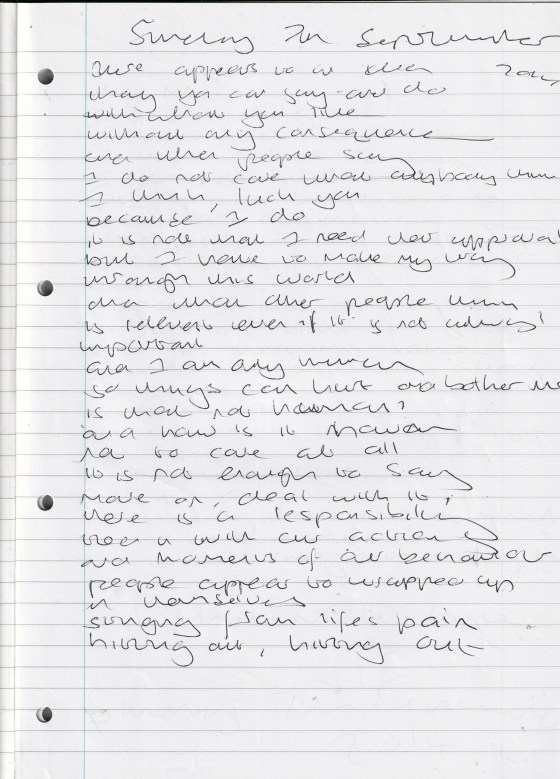 Sunday 7th September
There appears to be an idea 2014
that you can say and do
without any consequence
and when people say
I do not care what anybody think
I think, luck you
because I do
it is not that I need their approval
but I have to make my way
through this world
and what other people think
is relevant even if it is not always
important
and I am only human
so things can hurt and bother me
is that not human?
and how is it human
not to care at all
it is not enough to say
move on, deal with it,
there is a responsibility
with our actions
and manners of our behaviour
people appear so wrapped up
in themselves
stinging from lifes pain
hitting out, hitting out